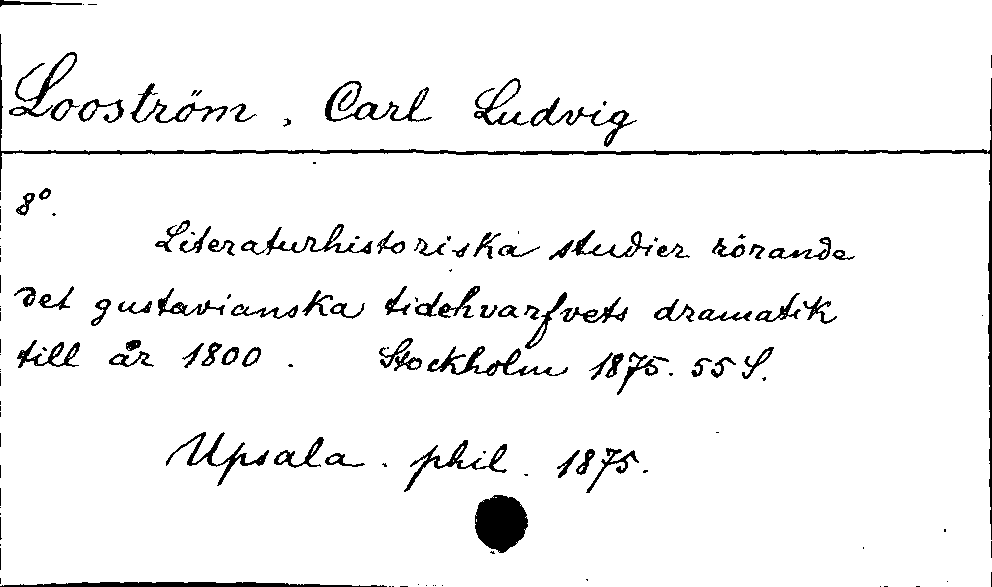 Looström, Carl Ludvig
8°.
Literaturhistoriska studier rörande
det gustavianska tidehvarfvets dramatik
till år 1800. Stockholm 1875. 55 S.
Upsala. phil. 1875.